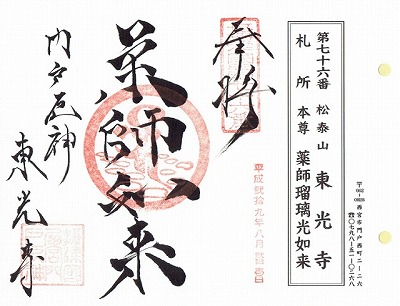 第七十六番 松泰山 東光寺
札所 本尊 薬師瑠璃光如来
〒662-0828 西宮市門戸西町二ー二六
☎〇七九八ー五一ー〇二六八
奉拝
平成弐拾九年八月
薬師如来
門戸厄神
東光寺